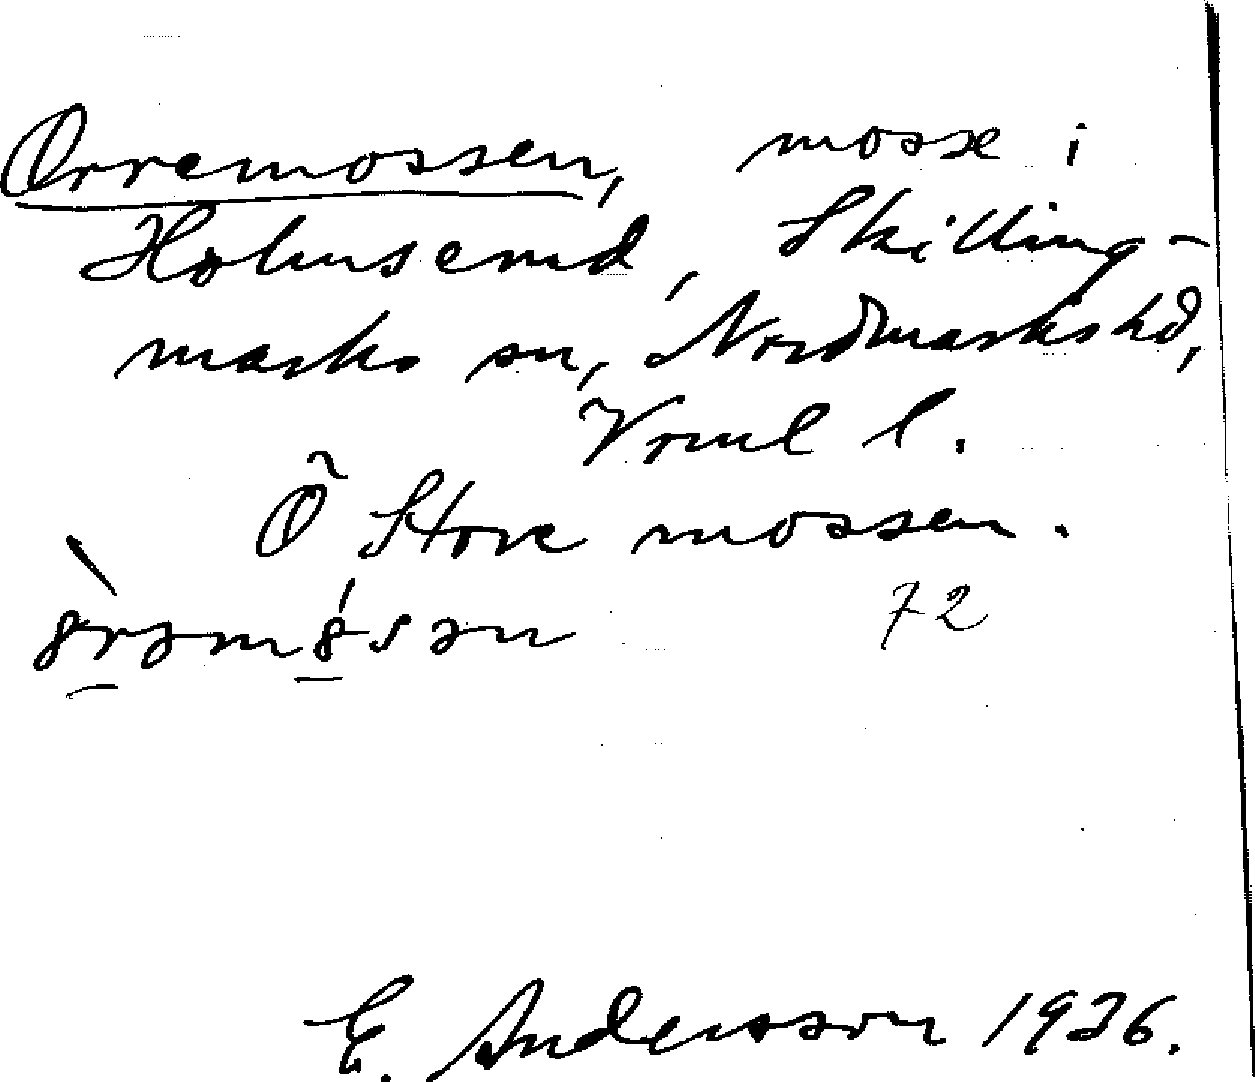 Orremossen, mosse i
Holmserud, Skilling-
marks sn, Nordmarks hd,
Vrml l.
Õ Store mossen.
72
E. Andersson 1936.